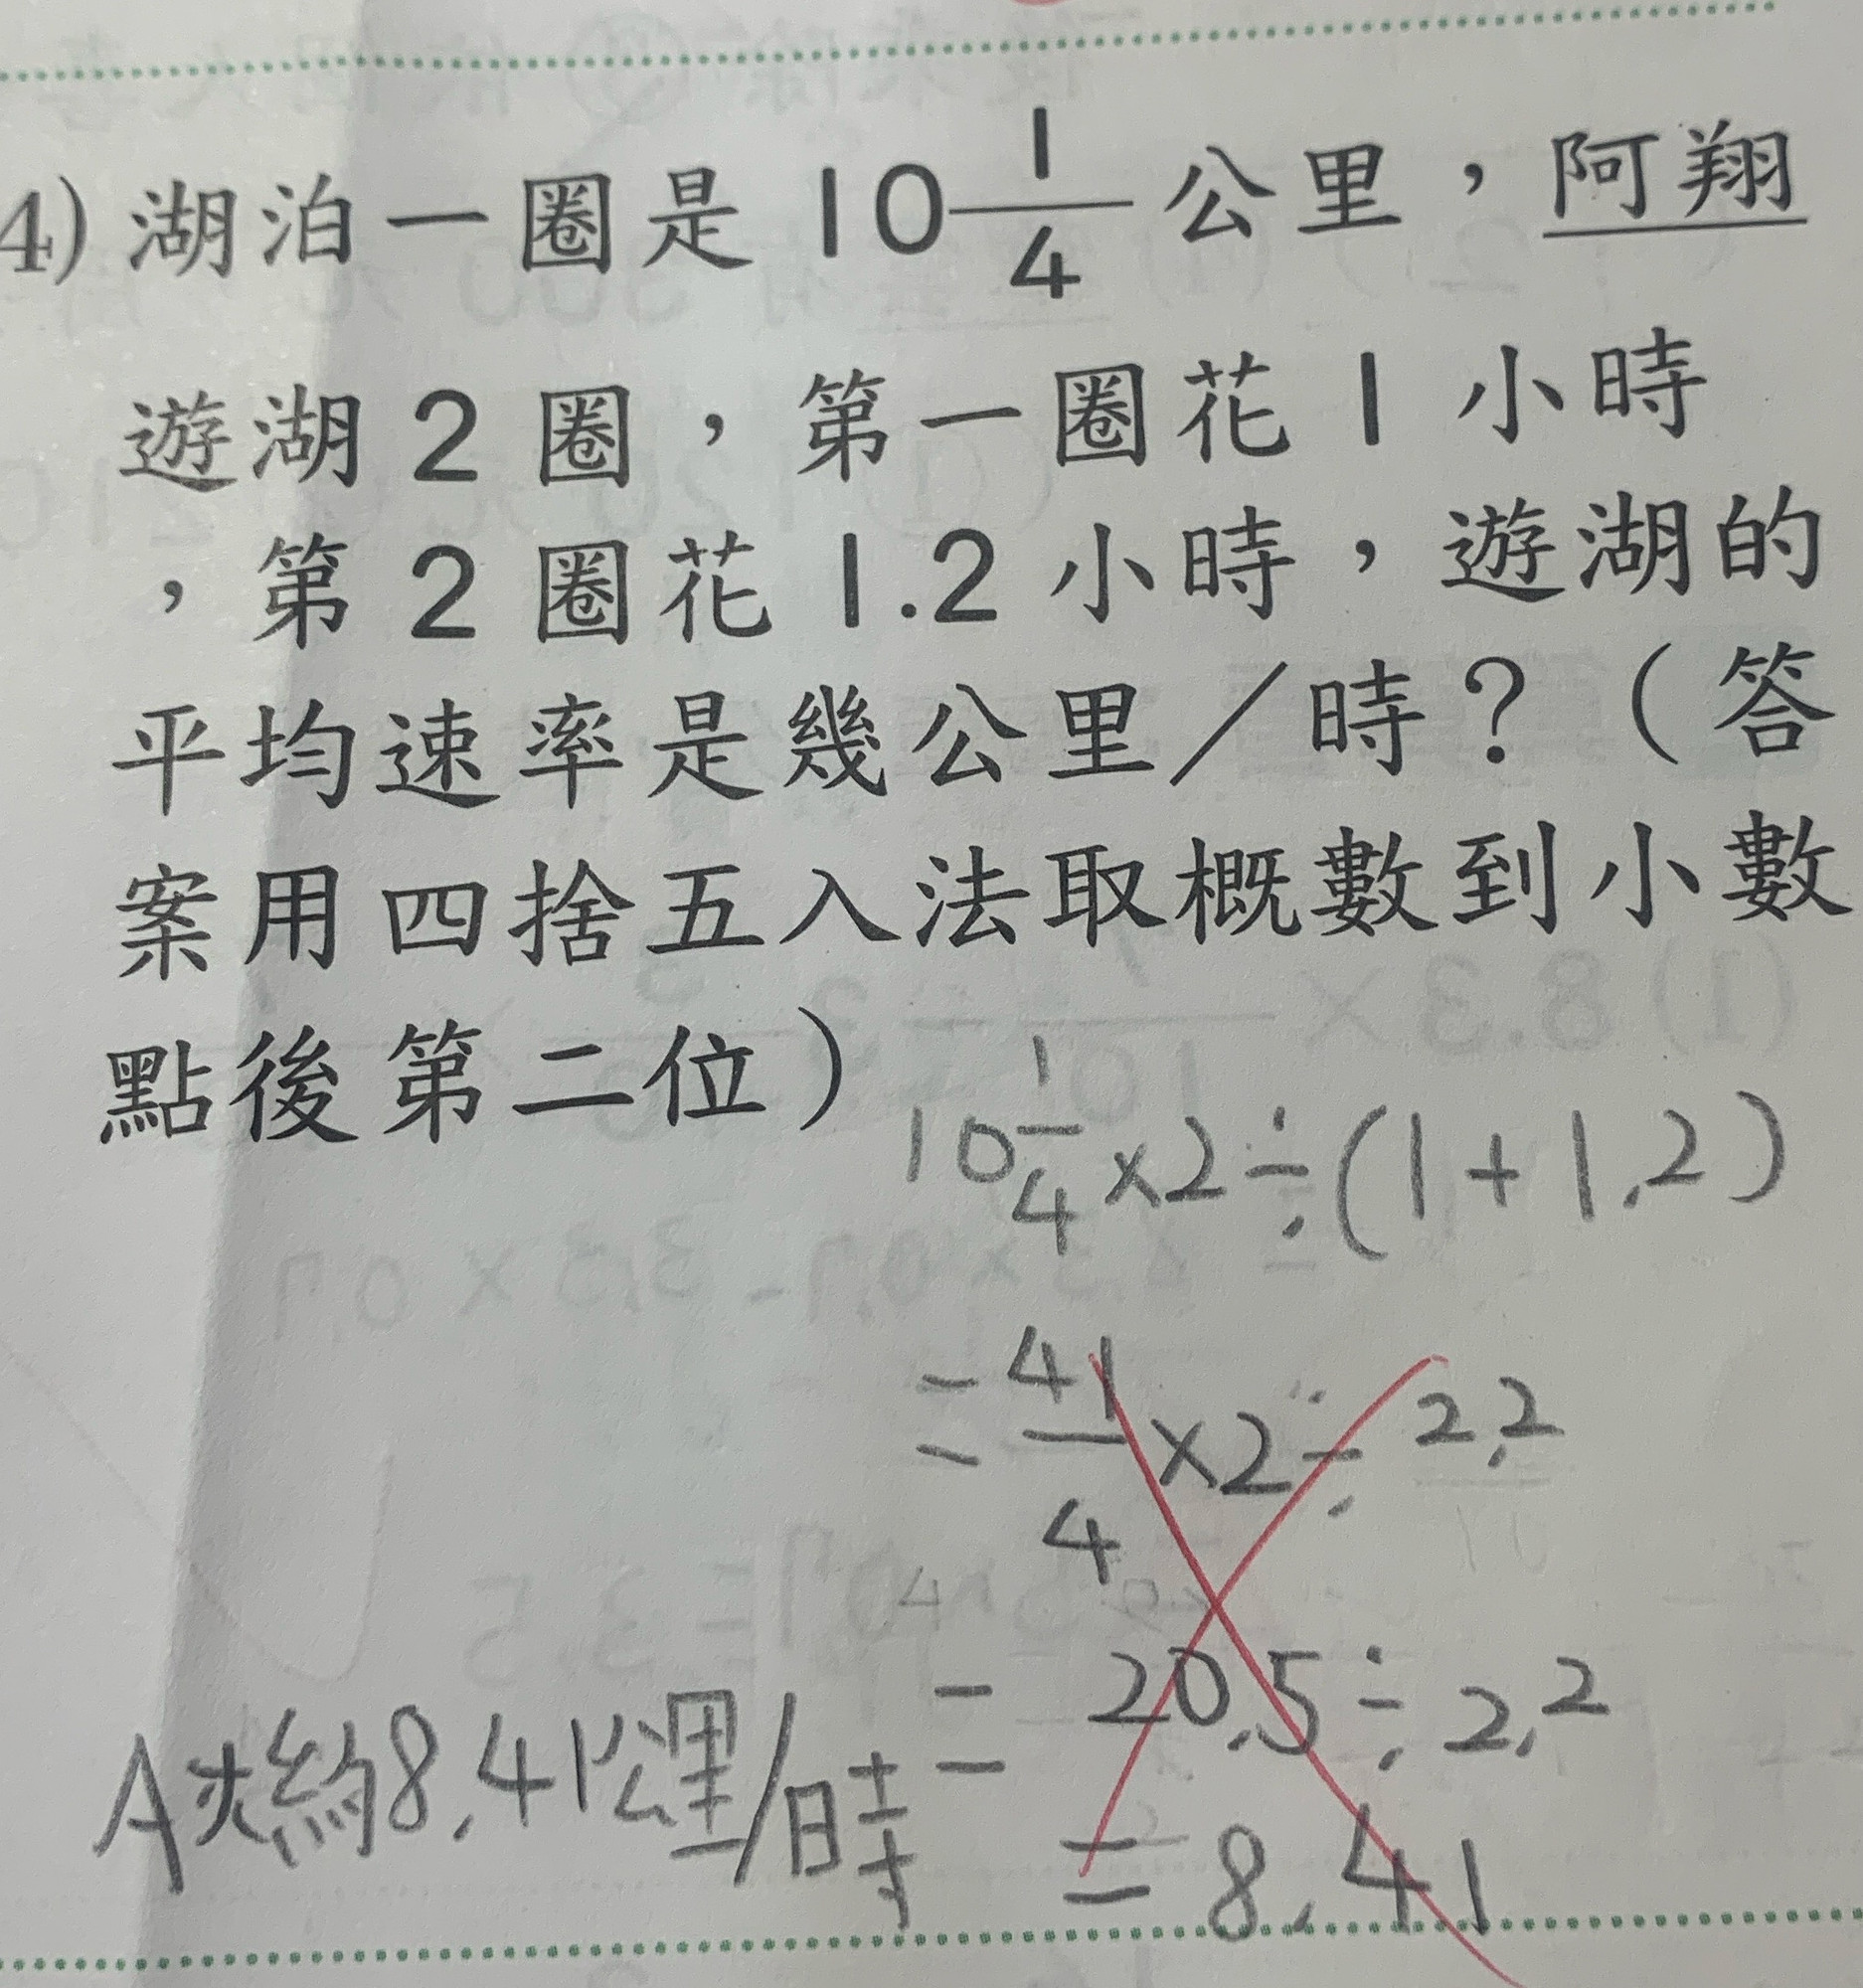 4) 湖泊一圈是 10 1/4 公里，阿翔
遊湖 2 圈，第一圈花 1 小時
，第 2 圈花 1.2 小時，遊湖的
平均速率是幾公里／時？（答
案用四捨五入法取概數到小數
點後第二位）
10 1/4 × 2 ÷ (1 + 1.2)
= 41/4 × 2 ÷ 2.2
= 20.5 ÷ 2.2
= 8.41
A大約8.41公里/時